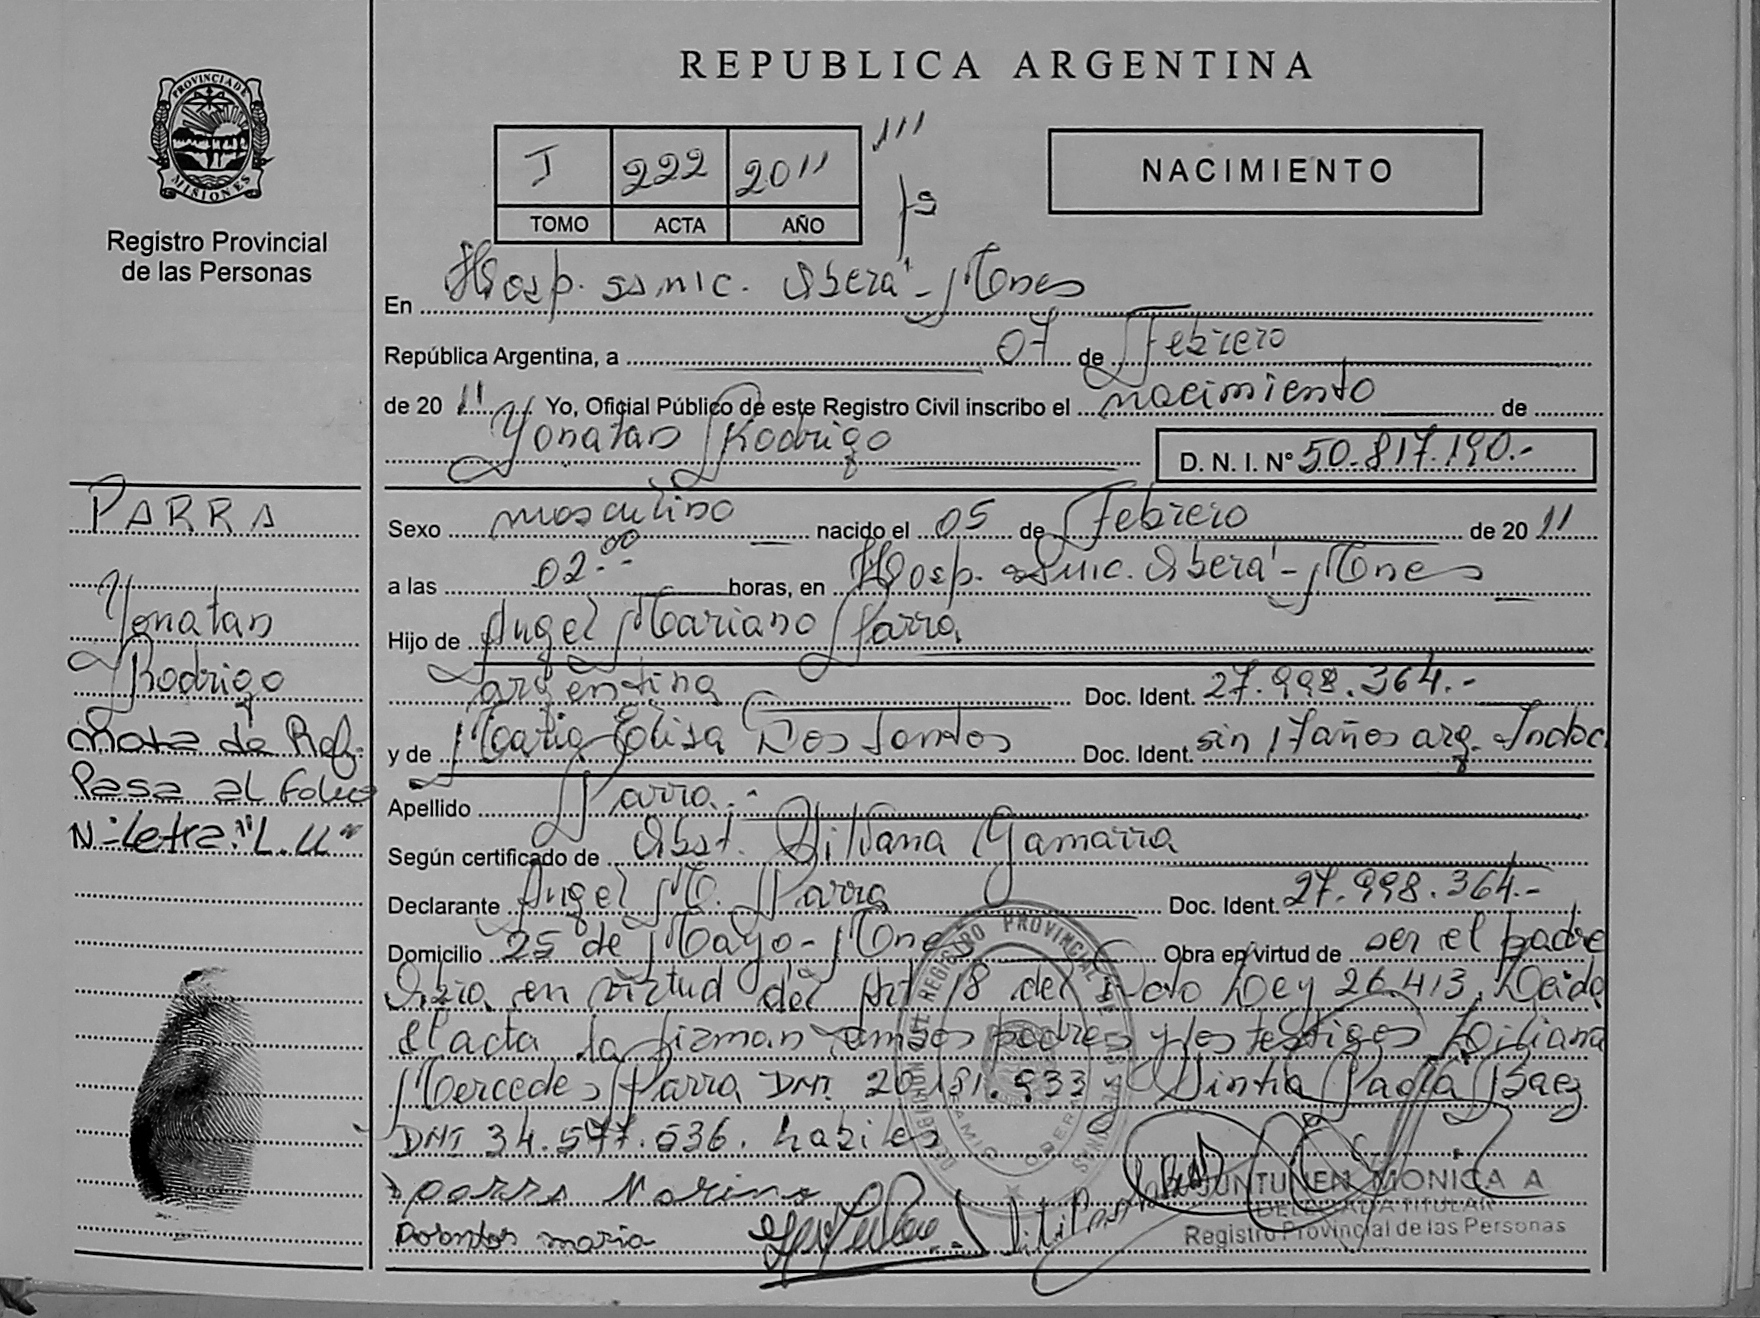 PROVINCIA DE MISIONES
Registro Provincial
de las Personas
REPUBLICA ARGENTINA
I 222 2011 ///
TOMO ACTA AÑO
NACIMIENTO
En Hosp. Samic. Oberá - Mnes
República Argentina, a 07 de Febrero
de 2011 Yo, Oficial Público de este Registro Civil inscribo el nacimiento de
Yonatan Rodrigo D. N. I. N° 50.817.190.-
Sexo masculino nacido el 05 de Febrero de 2011
a las 02.00 horas, en Hosp. Samic. Oberá - Mnes
Hijo de Angel Mariano Parra
argentina Doc. Ident. 27.998.364.-
y de Maria Elisa Dos Santos Doc. Ident. sin 17 años arg. Indoc
Apellido Parra.-
Según certificado de Obst. Silvana Gamarra
Declarante Angel M. Parra Doc. Ident. 27.998.364.-
Domicilio 25 de Mayo - Mnes Obra en virtud de ser el padre
Obra en virtud del Art 18 del Dto Ley 26.413. Leida
el acta la firman ambos padres y los testigos Liliana
Mercedes Parra DNI 20.181.933 y Sintia Paola Baez
DNI 34.577.636. habiles
parra Marino
Dosantos maria
JUNTUNEN MONICA A
DELEGADA TITULAR
Registro Provincial de las Personas
PARRA
Yonatan
Rodrigo
Nota de Ref.
Pasa al Folio
N= Letra: "L.U"